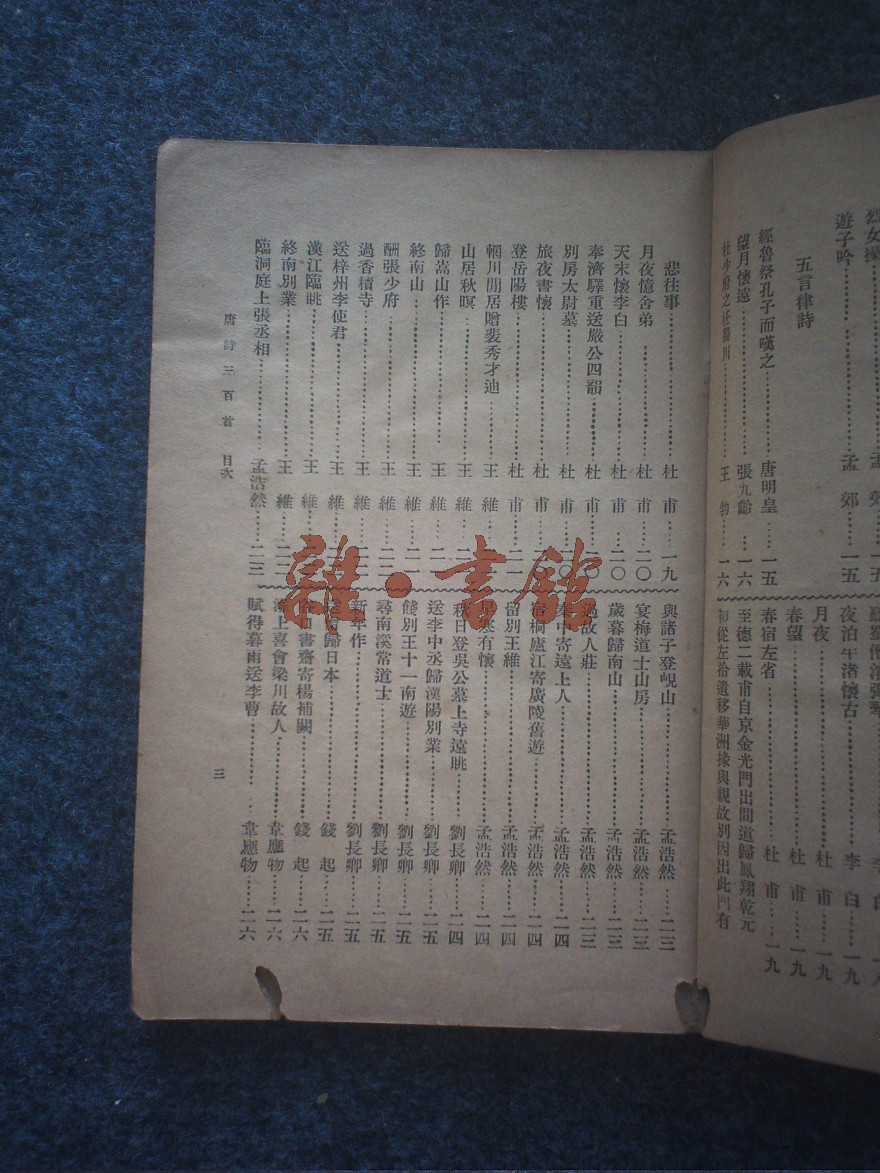 烈女操……孟 郊……一五
遊子吟……孟 郊……一五
五言律詩
經魯祭孔子而嘆之……唐明皇……一五
望月懷遠……張九齡……一六
杜少府之任蜀川……王 勃……一六
夜泊牛渚懷古……李 白……一九
月夜……杜 甫……一九
春望……杜 甫……一九
春宿左省……杜 甫……一九
至德二載甫自京金光門出間道歸鳳翔乾元
初從左拾遺移華洲掾與親故別因出此門有
悲往事……杜 甫……一九
月夜憶舍弟……杜 甫……二〇
天末懷李白……杜 甫……二〇
奉濟驛重送嚴公四韻……杜 甫……二〇
別房太尉墓……杜 甫……
旅夜書懷……杜 甫……二〇
登岳陽樓……杜 甫……二一
輞川閒居贈裴秀才迪……王 維……
山居秋暝……王 維……
歸嵩山作……王 維……
終南山……王 維……
酬張少府……王 維……二一
過香積寺……王 維……二二
送梓州李使君……王 維……
漢江臨眺……王 維……
終南別業……王 維……二三
臨洞庭上張丞相……孟浩然……二三
與諸子登峴山……孟浩然……二三
宴梅道士山房……孟浩然……二三
歲暮歸南山……孟浩然……二三
過故人莊……孟浩然……二三
中寄遠上人……孟浩然……二四
宿桐廬江寄廣陵舊遊……孟浩然……二四
留別王維……孟浩然……二四
寒有懷……孟浩然……二四
秋日登吳公墓上寺遠眺……劉長卿……二四
送李中丞歸漢陽別業……劉長卿……二五
餞別王十一南遊……劉長卿……二五
尋南溪常道士……劉長卿……二五
新年作……劉長卿……二五
歸日本……錢 起……二五
谷口書齋寄楊補闕……錢 起……二六
上喜會梁川故人……韋應物……二六
賦得暮雨送李曹……韋應物……二六
唐詩三百首 目次
三
雜·書館